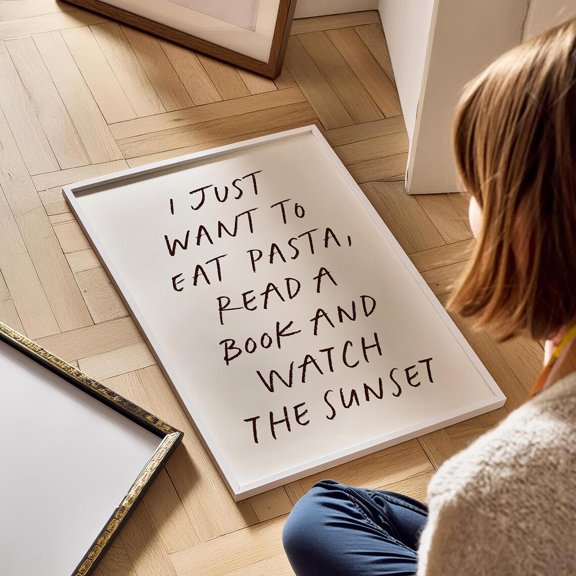 I JUST
WANT TO
EAT PASTA,
READ A
BOOK AND
WATCH
THE SUNSET